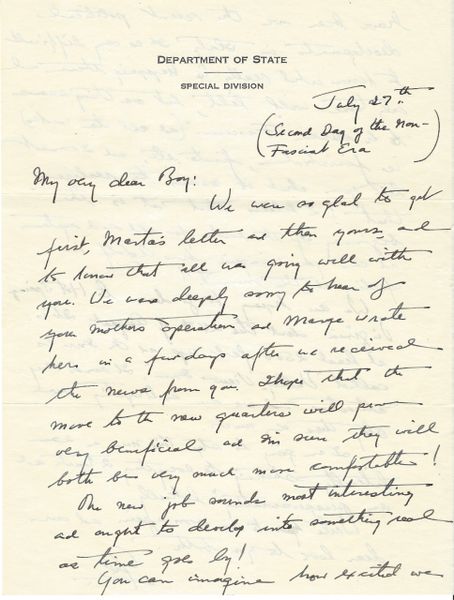 DEPARTMENT OF STATE
SPECIAL DIVISION
July 27th
(Second Day of the Non-
Fascist Era)
My very dear Boy:
We were so glad to get
first, Marta's letter and then yours and
to know that all was going well with
you. We were deeply sorry to hear of
your mothers operation and Marge wrote
her in a few days after we received
the news from you. I hope that the
move to the new quarters will prove
very beneficial and I'm sure they will
both be very much more comfortable!
The new job sounds most interesting
and ought to develop into something real
as time goes by!
You can imagine how excited we